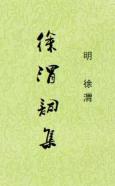 明 徐渭
徐渭詞集